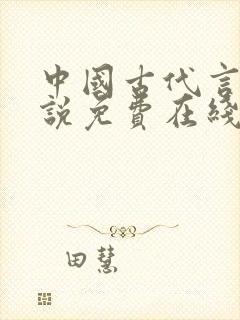 中國古代言
說免費在綫
田慧